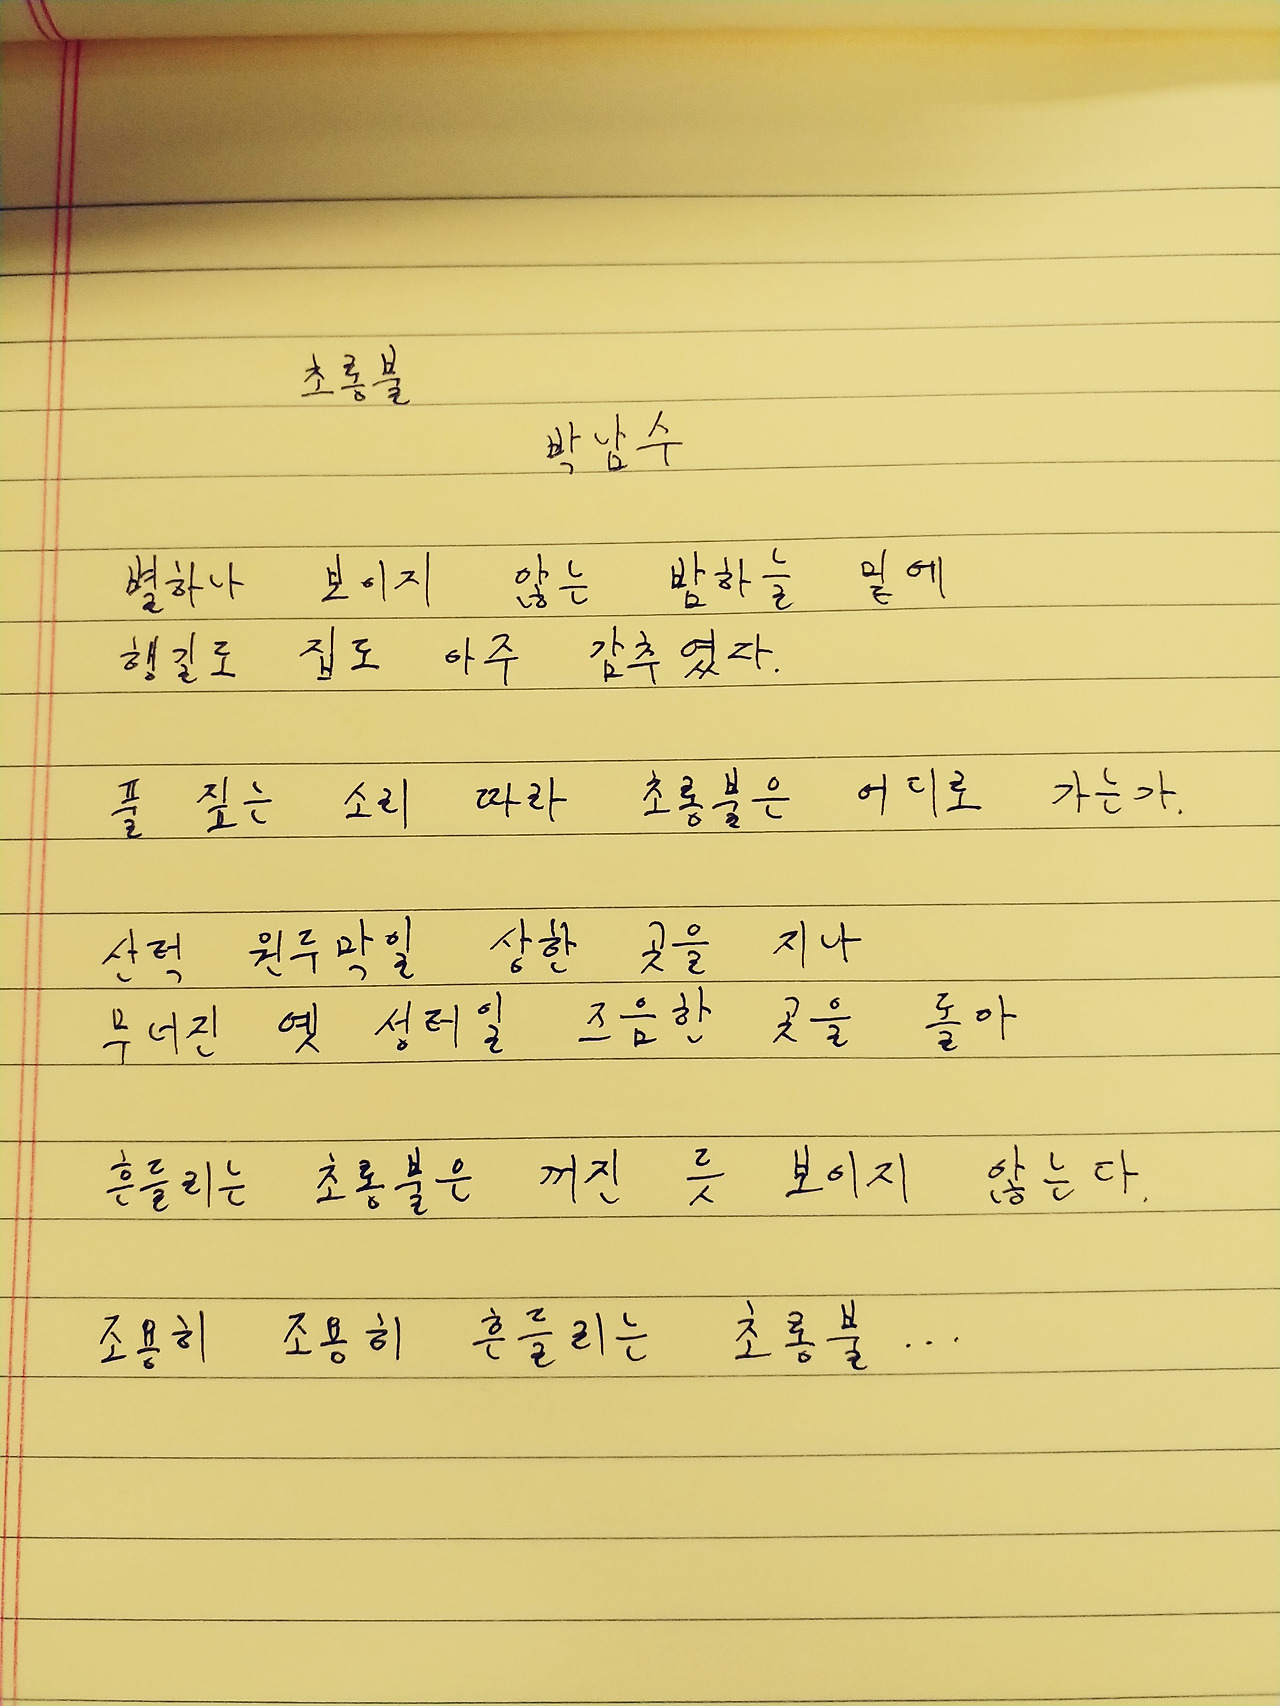 초롱불
박남수
별하나 보이지 않는 밤하늘 밑에
행길도 집도 아주 감추였다.
풀 짚는 소리 따라 초롱불은 어디로 가는가.
산턱 원두막일 상한 곳을 지나
무너진 옛 성터일 즈음한 곳을 돌아
흔들리는 초롱불은 꺼진 듯 보이지 않는다.
조용히 조용히 흔들리는 초롱불...